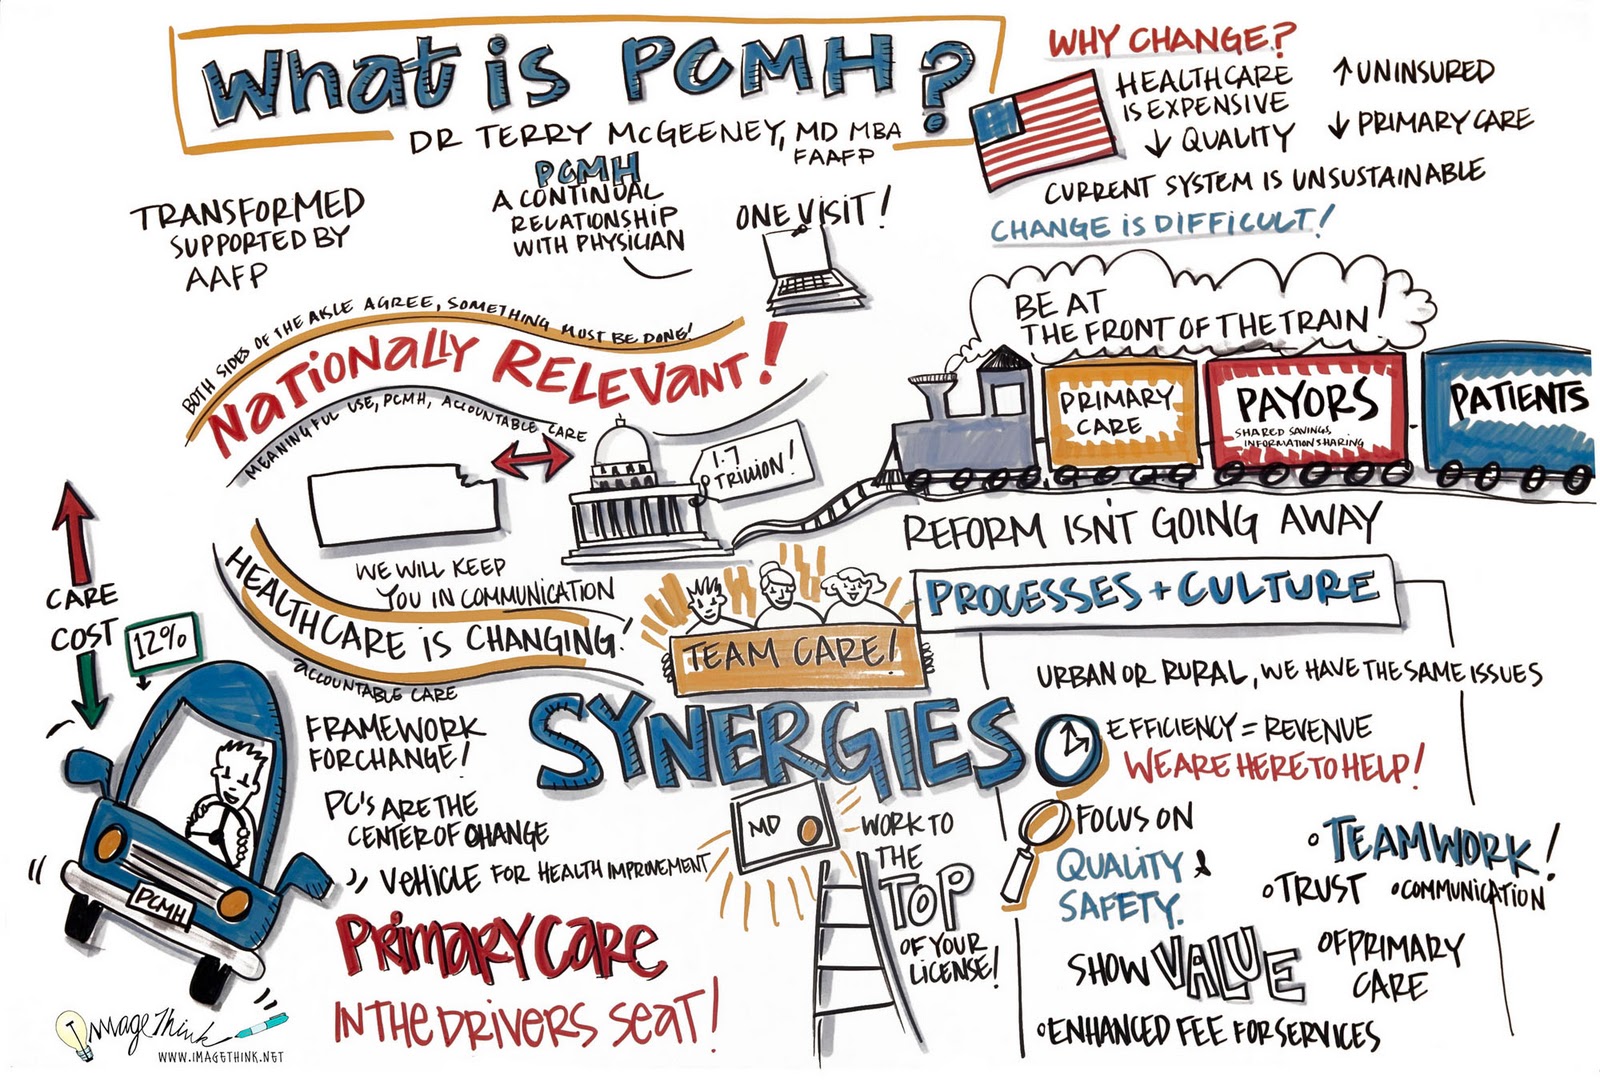 What is PCMH?
DR TERRY McGEENEY, MD MBA
FAAFP
WHY CHANGE?
HEALTHCARE
IS EXPENSIVE
↓ QUALITY
↑ UNINSURED
↓ PRIMARY CARE
CURRENT SYSTEM IS UNSUSTAINABLE
CHANGE IS DIFFICULT!
TRANSFORMED
SUPPORTED BY
AAFP
PCMH
A CONTINUAL
RELATIONSHIP
WITH PHYSICIAN
ONE VISIT!
BE AT
THE FRONT OF THE TRAIN!
PRIMARY
CARE
PAYORS
SHARED SAVINGS,
INFORMATION SHARING
PATIENTS
REFORM ISN'T GOING AWAY
BOTH SIDES OF THE AISLE AGREE, SOMETHING MUST BE DONE!
NATIONALLY RELEVANT!
MEANINGFUL USE, PCMH, ACCOUNTABLE CARE
1.7
TRILLION!
WE WILL KEEP
YOU IN COMMUNICATION
HEALTHCARE IS CHANGING!
ACCOUNTABLE CARE
CARE
COST
12%
PCMH
FRAMEWORK
FOR CHANGE!
PC'S ARE THE
CENTER OF CHANGE
VEHICLE FOR HEALTH IMPROVEMENT
PRIMARY CARE
IN THE DRIVERS SEAT!
TEAM CARE!
SYNERGIES
MD
WORK TO
THE
TOP
OF YOUR
LICENSE!
PROCESSES + CULTURE
URBAN OR RURAL, WE HAVE THE SAME ISSUES
EFFICIENCY = REVENUE
WE ARE HERE TO HELP!
FOCUS ON
QUALITY &
SAFETY.
TEAMWORK!
TRUST
COMMUNICATION
SHOW VALUE OF PRIMARY
CARE
ENHANCED FEE FOR SERVICES
ImageThink
WWW.IMAGETHINK.NET